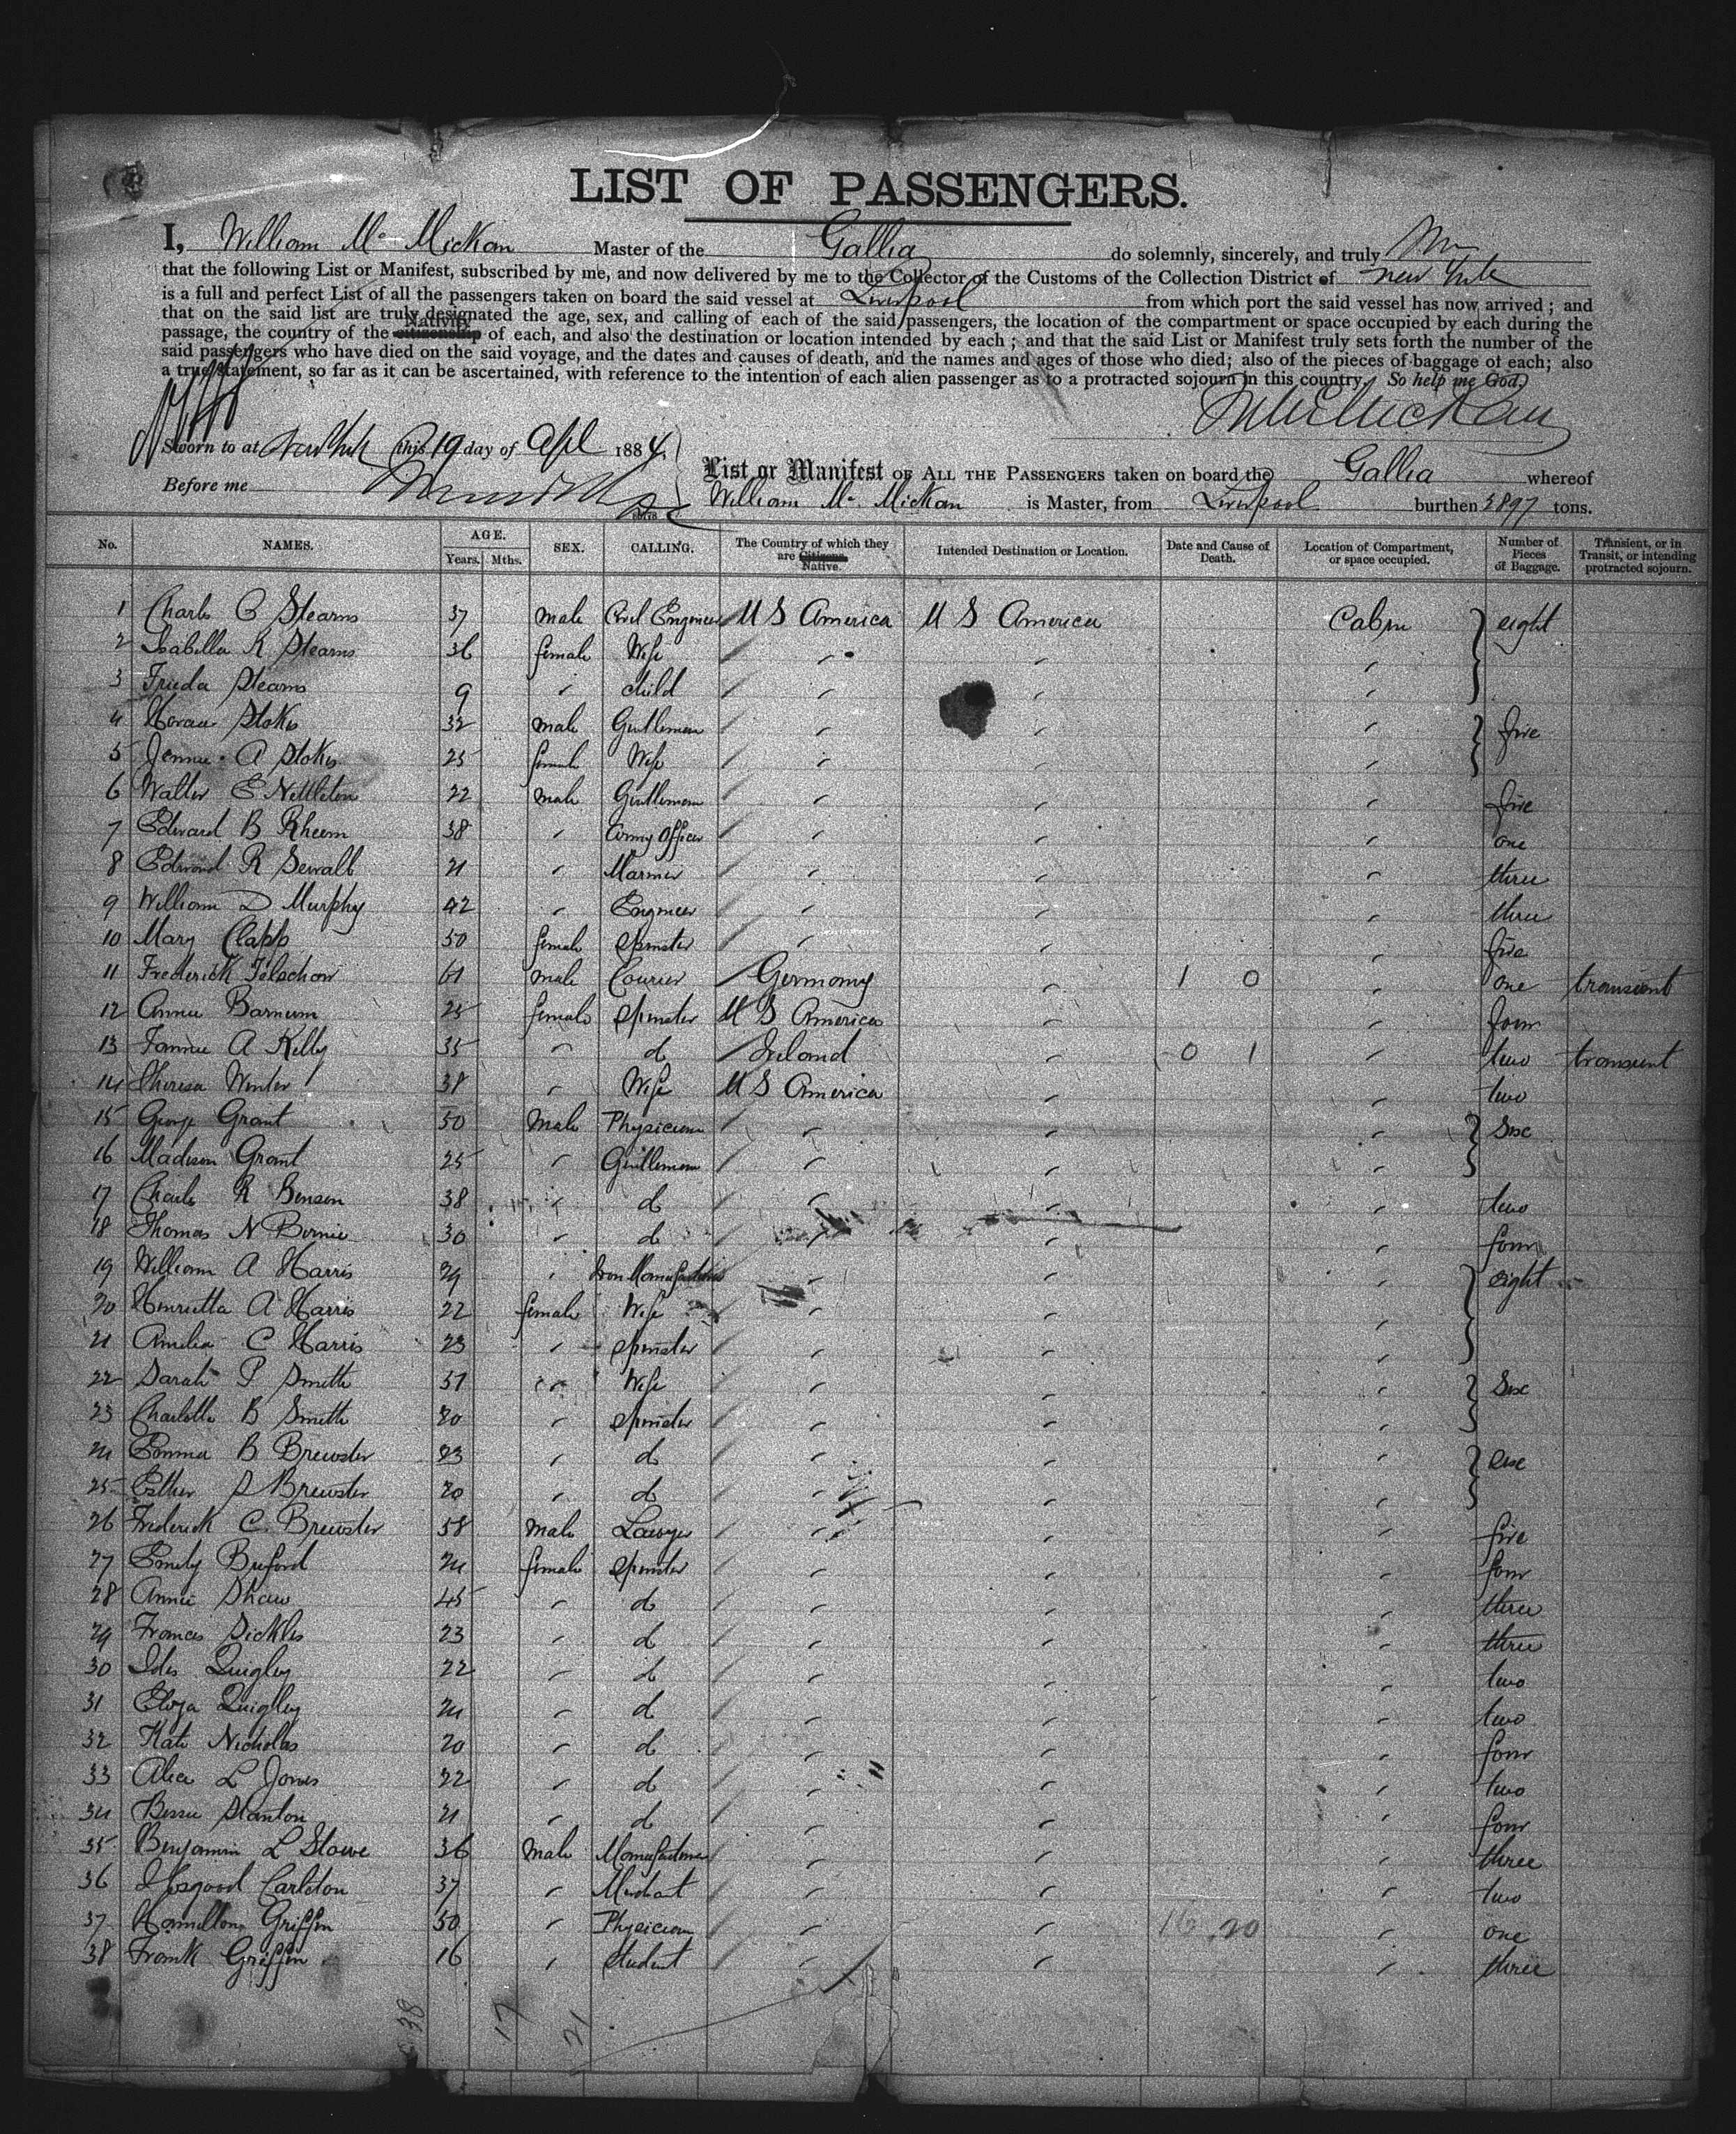 LIST OF PASSENGERS.
I, William Mc Mickan Master of the Gallia do solemnly, sincerely, and truly
that the following List or Manifest, subscribed by me, and now delivered by me to the Collector of the Customs of the Collection District of New York
is a full and perfect List of all the passengers taken on board the said vessel at Liverpool from which port the said vessel has now arrived; and
that on the said list are truly designated the age, sex, and calling of each of the said passengers, the location of the compartment or space occupied by each during the
Nativity
passage, the country of the citizenship of each, and also the destination or location intended by each; and that the said List or Manifest truly sets forth the number of the
said passengers who have died on the said voyage, and the dates and causes of death, and the names and ages of those who died; also of the pieces of baggage of each; also
a true statement, so far as it can be ascertained, with reference to the intention of each alien passenger as to a protracted sojourn in this country. So help me God.
W McMickan
Sworn to at New York this 19 day of Apl 1884.
List or Manifest OF ALL THE PASSENGERS taken on board the Gallia whereof
Before me
William Mc Mickan is Master, from Liverpool burthen 3897 tons.
No. NAMES. AGE. Years. Mths. SEX. CALLING. The Country of which they are Citizens. Native. Intended Destination or Location. Date and Cause of Death. Location of Compartment, or space occupied. Number of Pieces of Baggage. Transient, or in Transit, or intending protracted sojourn.
1 Charles C Stearns 37 male Civil Engineer U S America U S America Cabin eight
2 Isabella R Stearns 36 female Wife " " "
3 Frieda Stearns 9 " child " " "
4 Horace Stokes 32 male Gentleman " " " five
5 Jennie A Stokes 25 female Wife " " "
6 Walter E Nettleton 22 male Gentleman " " " five
7 Edward B Rheem 38 " Army Officer " " " one
8 Edward R Sewall 21 " Mariner " " " three
9 William D Murphy 42 " Engineer " " " three
10 Mary Clapp 50 female Spinster " " " five
11 Frederick Telschow 61 male Courier Germany " 1 0 " one transient
12 Annie Barnum 25 female Spinster U S America " " four
13 Fannie A Kelly 35 " do Ireland " 0 1 " two transient
14 Theresa Winter 38 " Wife U S America " " two
15 George Grant 50 Male Physician " " " Six
16 Madison Grant 25 " Gentleman " " "
17 Charles R Benson 38 " do " " " two
18 Thomas N Bernie 30 " do " " " four
19 William A Harris 29 " Iron Manufacturer " " " eight
20 Henrietta A Harris 22 female Wife " " "
21 Amelia C Harris 23 " Spinster " " "
22 Sarah P Smith 51 " Wife " " " Six
23 Charlotte B Smith 20 " Spinster " " "
24 Emma B Brewster 23 " do " " " six
25 Esther S Brewster 20 " do " " "
26 Frederick C. Brewster 58 Male Lawyer " " " five
27 Emily Buford 24 female Spinster " " " four
28 Annie Shaw 45 " do " " " three
29 Frances Sickles 23 " do " " " three
30 Ides Quigley 22 " do " " " two
31 Eliza Quigley 24 " do " " " two
32 Kate Nicholas 20 " do " " " four
33 Alice L Jones 22 " do " " " two
34 Bessie Stanton 21 " do " " " four
35 Benjamin L Stowe 36 Male Manufacturer " " " three
36 I Osgood Carleton 37 " Merchant " " " two
37 Hamilton Griffin 50 " Physician " 16 20 " " one
38 Frank Griffin 16 " Student " " " three
38 17 21